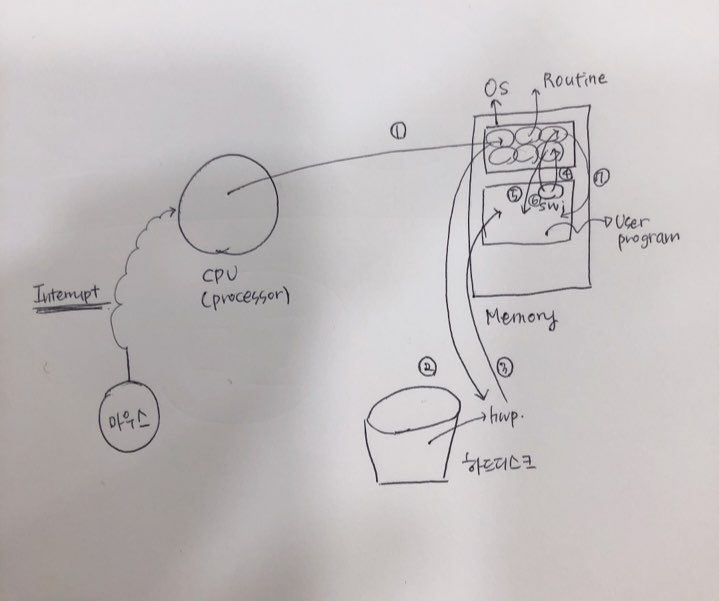 OS
Routine
①
④
⑦
⑤
⑥
swi
User
program
CPU
(processor)
Interrupt
Memory
②
③
마우스
hwp.
하드디스크